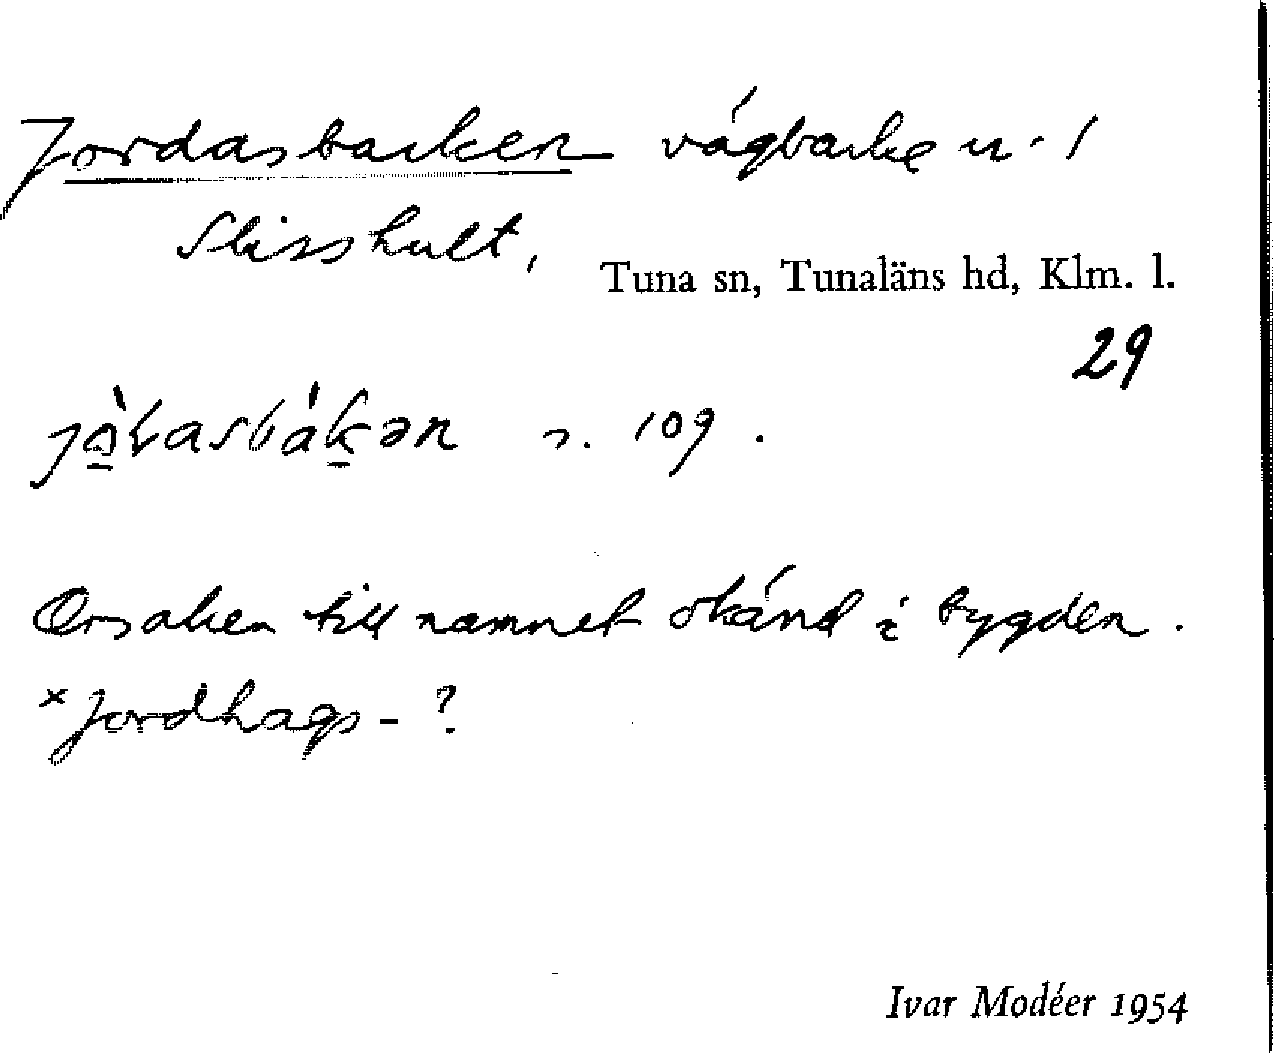 Jordasbacken vägbacke n. 1
Slisshult,
Tuna sn, Tunaläns hd, Klm. l.
29
n. 109.
Orsaken till namnet okänd i bygden.
×Jordhags-?
Ivar Modéer 1954